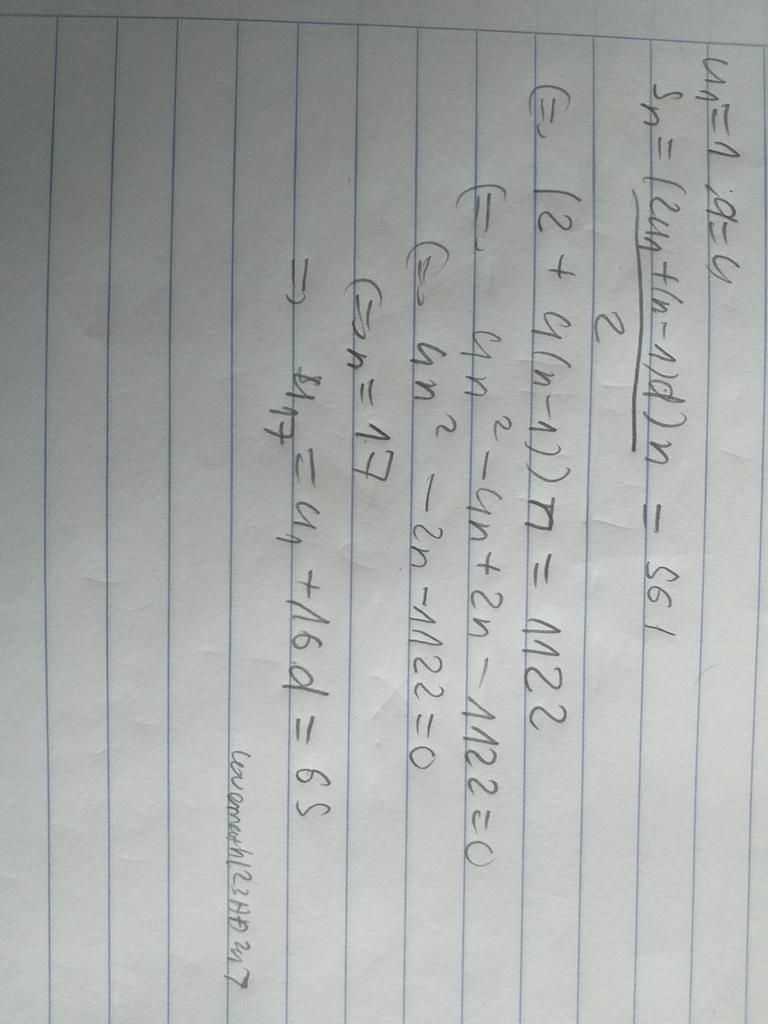 u₁=1 ; d=4
Sₙ = (2u₁+(n-1)d)n = 561
2
(=, (2 + 4(n-1))n = 1122
(=, 4n² - 4n + 2n - 1122 = 0
(=, 4n² - 2n - 1122 = 0
(=> n = 17
=> u₁₇ = u₁ + 16d = 65